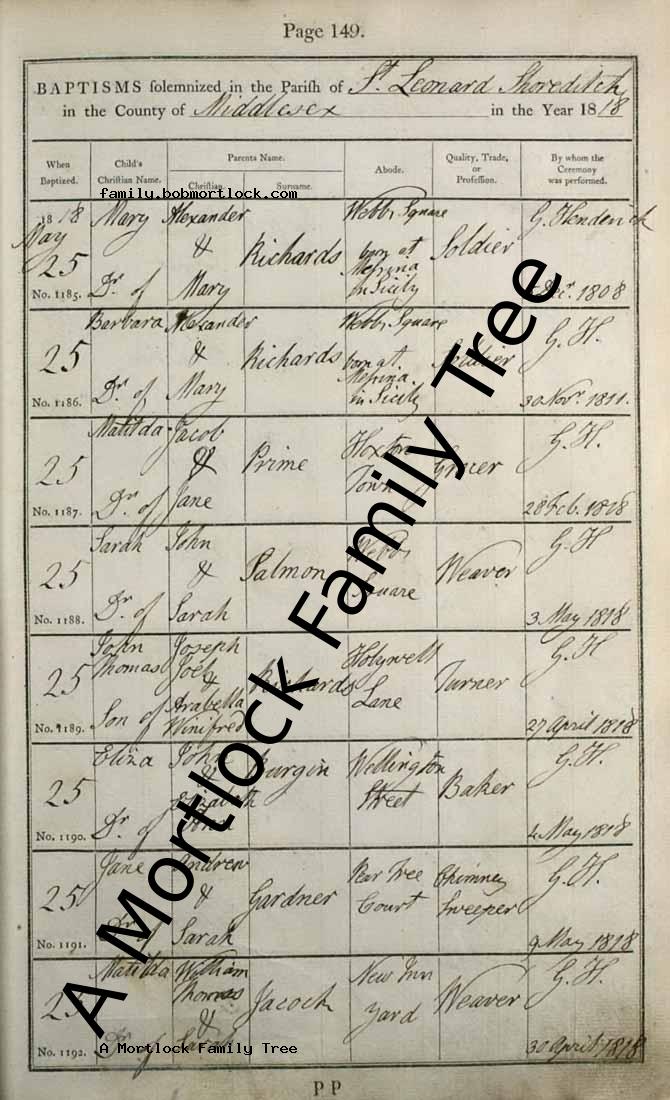 Page 149.
BAPTISMS solemnized in the Parish of St. Leonard Shoreditch
in the County of Middlesex in the Year 1818
When Baptized. Child's Christian Name. Parents Name. Christian. Surname. Abode. Quality, Trade, or Profession. By whom the Ceremony was performed.
familu.bobmortlock.com
1818 Mary Alexander Webbs Square G. Henderick
May & Richards born at Soldier
25 Messina
No. 1185. Dr. of Mary in Sicily Decr. 1808
Barbara Alexander Webbs Square G. H.
25 & Richards born at Soldier
Messina
No. 1186. Dr. of Mary in Sicily 30 Novr. 1811.
Matilda Jacob Hoxton G. H.
25 & Prime Town Grocer
No. 1187. Dr. of Jane 28 Feb. 1818
Sarah John Webbs G. H
25 & Salmon Square Weaver
No. 1188. Dr. of Sarah 3 May 1818
John Joseph Holywell G. H
Thomas Joel
25 & Richards Lane Turner
Arabella
No. 1189. Son of Winifred 27 April 1818
Eliza John Wellington G. H.
25 & Burgin Street Baker
Elizabeth
No. 1190. Dr. of 4 May 1818
Jane Andrew Pear Tree Chimney G. H.
25 & Gardner Court Sweeper
No. 1191. Dr. of Sarah 9 May 1818
Matilda William New Inn G. H.
Thomas
25 & Jacock Yard Weaver
No. 1192. Dr. of Sarah 30 April 1818
A Mortlock Family Tree
A Mortlock Family Tree
P P